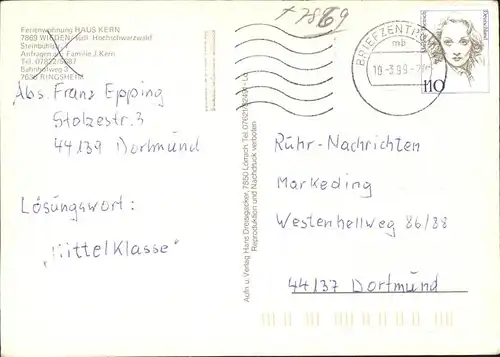 Ferienwohnung HAUS KERN
7869 WIEDEN, südl. Hochschwarzwald
Steinbühl
Anfragen an: Familie J. Kern
Tel. 07822/5087
Bahnhofweg 3
7636 RINGSHEIM
+ 7869
BRIEFZENTRUM
mb
10-3.99-
Deutsche Bundespost
110
Abs. Franz Epping
Stolzestr. 3
44139 Dortmund
Lösungswort:
„Mittelklasse“
Aufn. u. Verlag Hans Drossgacker, 7850 Lörrach, Tel. 07621
Reproduktion und Nachdruck verboten
Ruhr-Nachrichten
Markeding
Westenhellweg 86/88
44137 Dortmund